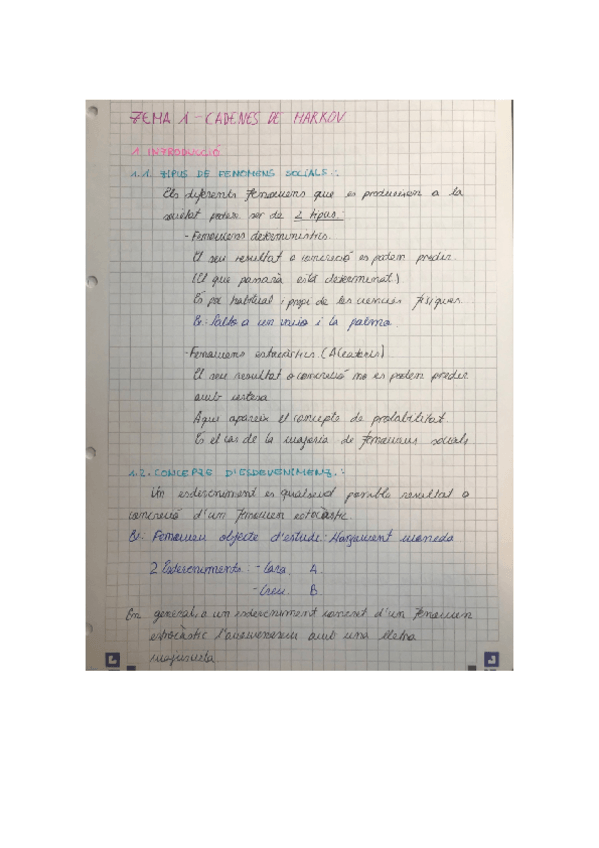 TEMA 1 - CADENES DE MARKOV
1. INTRODUCCIÓ
1.1. TIPUS DE FENÒMENS SOCIALS.:
Els diferents fenòmens que es produeixen a la
societat poden ser de 2 tipus:
- Fenòmens deterministics.
El seu resultat o concreció es poden predir.
(El que passarà està determinat)
És poc habitual i propi de les ciencies físiques.
Ex: Salto a un
- Fenòmens estocàstics (Aleatoris)
El seu resultat o concreció no es poden predir
amb certesa
Aqui apareix el concepte de probabilitat.
És el cas de la majoria de fenòmens socials
1.2. CONCEPTE D'ESDEVENIMENT.:
Un esdeveniment es qualsevol possible resultat o
concreció d'un fenomen estocàstic.
Ex: Fenomen objecte d'estudi: Llançament moneda
2 Esdeveniments: - Cara A
- Creu B
En general, a un esdeveniment concret d'un fenomen
estocàstic l'anomenarem amb una lletra
majúscula